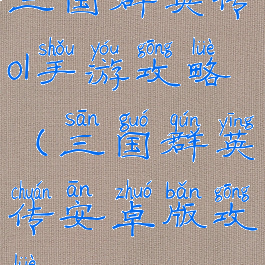 三国群英传
shǒu yóu gōng lüè
ol手游攻略
sān guó qún yīng
(三国群英
chuán ān zhuó bǎn gōng
传安卓版攻
lüè